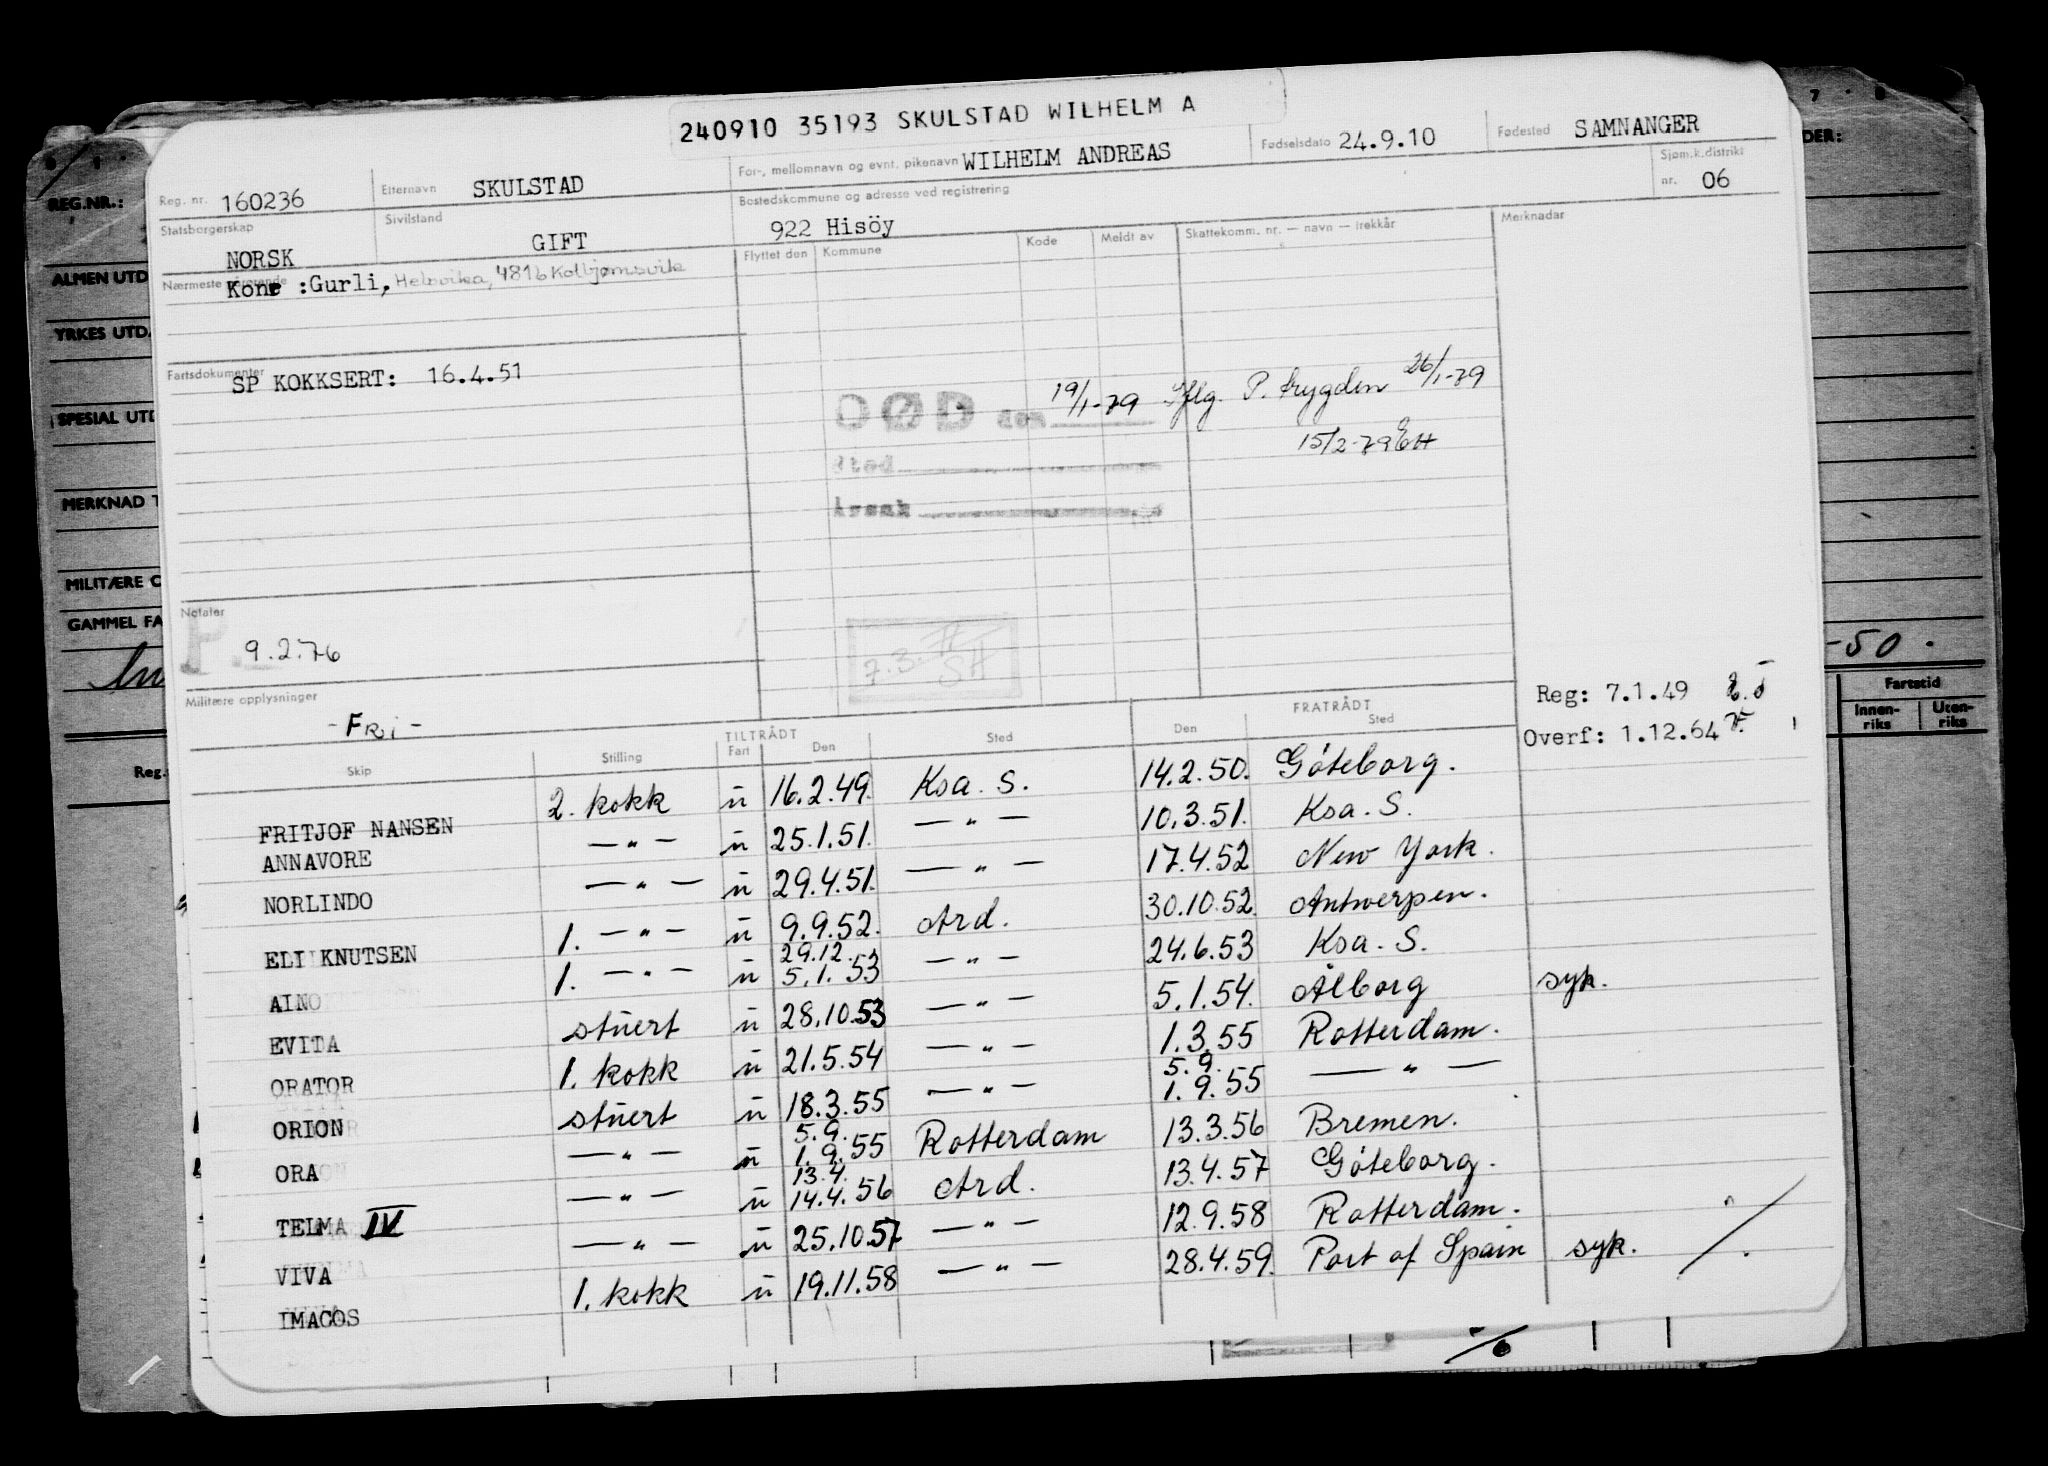 240910 35193 SKULSTAD WILHELM A
Reg. nr. 160236 Etternavn SKULSTAD For-, mellomnavn og evnt. pikenavn WILHELM ANDREAS Fødselsdato 24.9.10 Fødested SAMNANGER
Statsborgerskap NORSK Sivilstand GIFT Bostedskommune og adresse ved registrering 922 Hisöy Sjøm.k.distrikt nr. 06
Nærmeste pårørende Kone :Gurli, Helsvika, 4816 Kolbjørnsvik
Flyttet den Kommune Kode Meldt av Skattekomm. nr. — navn — trekkår Merknader
Fartsdokumenter SP KOKKSERT: 16.4.51
DØD den 19/1-79 Iflg. P. trygden 26/1-79
15/2-79 EH
Sted
Årsak
Notater
P. 9.2.76
7.3.77 SH
Militære opplysninger
- FRi -
Reg: 7.1.49
Overf: 1.12.64
TILTRÅDT FRATRÅDT
Skip Stilling Fart Den Sted Den Sted
FRITJOF NANSEN 2. kokk u 16.2.49. Ksa. S. 14.2.50. Göteborg.
ANNAVORE — " — u 25.1.51. — " — 10.3.51. Ksa. S.
NORLINDO — " — u 29.4.51. — " — 17.4.52 New York.
ELI KNUTSEN 1. — " — u 9.9.52. Ard. 30.10.52. Antwerpen.
AINO 1. — " — u 29.12. 5.1.53 — " — 24.6.53 Ksa. S.
EVITA stuert u 28.10.53 — " — 5.1.54. Ålborg syk.
ORATOR 1. kokk u 21.5.54 — " — 1.3.55 Rotterdam.
ORION stuert u 18.3.55 — " — 5.9. 1.9.55 — " —
ORA — " — u 5.9. 1.9.55 Rotterdam 13.3.56 Bremen.
TELMA IV — " — u 13.4. 14.4.56 Ard. 13.4.57 Göteborg.
VIVA — " — u 25.10.57 — " — 12.9.58 Rotterdam.
IMACOS 1. kokk u 19.11.58 — " — 28.4.59. Port of Spain syk.
REG.NR.:
ALMEN UTD
YRKES UTD.
SPESIAL UTD
MERKNAD T
MILITÆRE O
GAMMEL FA
Reg.
7 . 8
DER:
-50.
Fartstid
Innen-riks Uten-riks